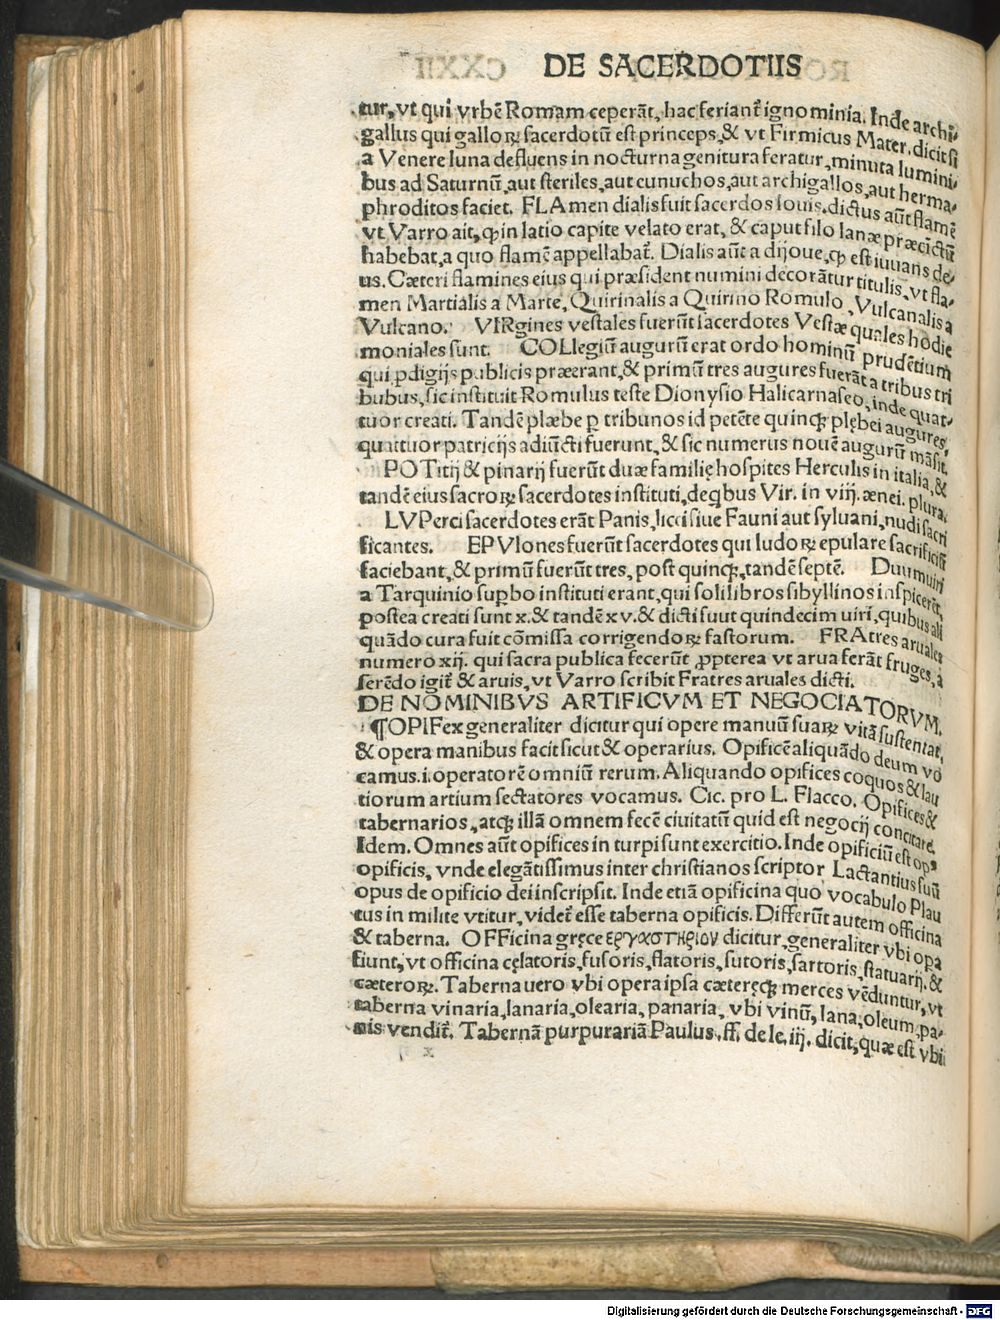 DE SACERDOTIIS
tur, vt qui vrbē Romam ceperāt, hac feriant᷑ ignominia. Inde archi-
gallus qui galloꝝ sacerdotū est princeps, & vt Firmicus Mater. dicit si
a Venere luna defluens in nocturna genitura feratur, minuta lumini-
bus ad Saturnū, aut steriles, aut eunuchos, aut archigallos, aut herma-
phroditos faciet. FLAmen dialis fuit sacerdos Iouis. dictus aūt flamē
vt Varro ait, ꝙ in latio capite velato erat, & caput filo lanæ præcīctū
habebat, a quo flamē appellabat᷑. Dialis aūt a dijoue, ꝙ est iuuans de-
us. Cæteri flamines eius qui præsident numini decorātur titulis, vt fla-
men Martialis a Marte, Quirinalis a Quirino Romulo, Vulcanalis a
Vulcano. VIRgines vestales fuerūt sacerdotes Vestæ quales hodie
moniales sunt. COLlegiū augurū erat ordo hominū prudētium
qui ꝓdigijs publicis præerant, & primū tres augures fuerāt a tribus tri
bubus, sic instituit Romulus teste Dionysio Halicarnaseo, inde quat-
tuor creati. Tandē plæbe ꝑ tribunos id petēte quinqȝ plębei augures,
quattuor patricijs adiūcti fuerunt, & sic numerus nouē augurū māsit.
POTitij & pinarij fuerūt duæ familię hospites Herculis in italia, &
tandē eius sacroꝝ sacerdotes instituti, de qbus Vir. in viij. ænei. plura.
LVPerci sacerdotes erāt Panis, licei siue Fauni aut syluani, nudi sacri
ficantes. EPVlones fuerūt sacerdotes qui ludoꝝ epulare sacrificiū
faciebant, & primū fuerūt tres, post quinqȝ, tandē septē. Duumuiri
a Tarquinio suꝑbo instituti erant, qui soli libros sibyllinos inspicerēt,
postea creati sunt x. & tandē xv. & dicti suut quindecim uiri, quibus ali
quādo cura fuit cōmissa corrigendoꝝ fastorum. FRAtres aruales
numero xij. qui sacra publica fecerūt ꝓpterea vt arua ferāt fruges, a
ferēdo igit᷑ & aruis, vt Varro scribit Fratres aruales dicti.
DE NOMINIBVS ARTIFICVM ET NEGOCIATORVM.
¶OPIFex generaliter dicitur qui opere manuū suaꝝ vitā sustentat,
& opera manibus facit sicut & operarius. Opificē aliquādo deum vo
camus. i. operatorē omniū rerum. Aliquando opifices coquos & lau
tiorum artium sectatores vocamus. Cic. pro L. Flacco, Opifices &
tabernarios, atqȝ illā omnem fecē ciuitatū quid est negocij concitare.
Idem. Omnes aūt opifices in turpi sunt exercitio. Inde opificiū est opꝰ
opificis, vnde elegātissimus inter christianos scriptor Lactantius suū
opus de opificio dei inscripsit. Inde etiā opificina quo vocabulo Plau
tus in milite vtitur, videt᷑ esse taberna opificis. Differūt autem officina
& taberna. OFFicina gręce ἐργαστηριον dicitur, generaliter vbi opa
fiunt, vt officina cęlatoris, fusoris, flatoris, sutoris, sartoris, statuarij. &
cæteroꝝ. Taberna uero vbi opera ipsa cæteręqȝ merces vēduntur, vt
taberna vinaria, lanaria, olearia, panaria, vbi vinū, lana, oleum, pa-
nis vendit᷑. Tabernā purpurariā Paulus. ff. de le. iij. dicit, quæ est vbi
Digitalisierung gefördert durch die Deutsche Forschungsgemeinschaft - DFG